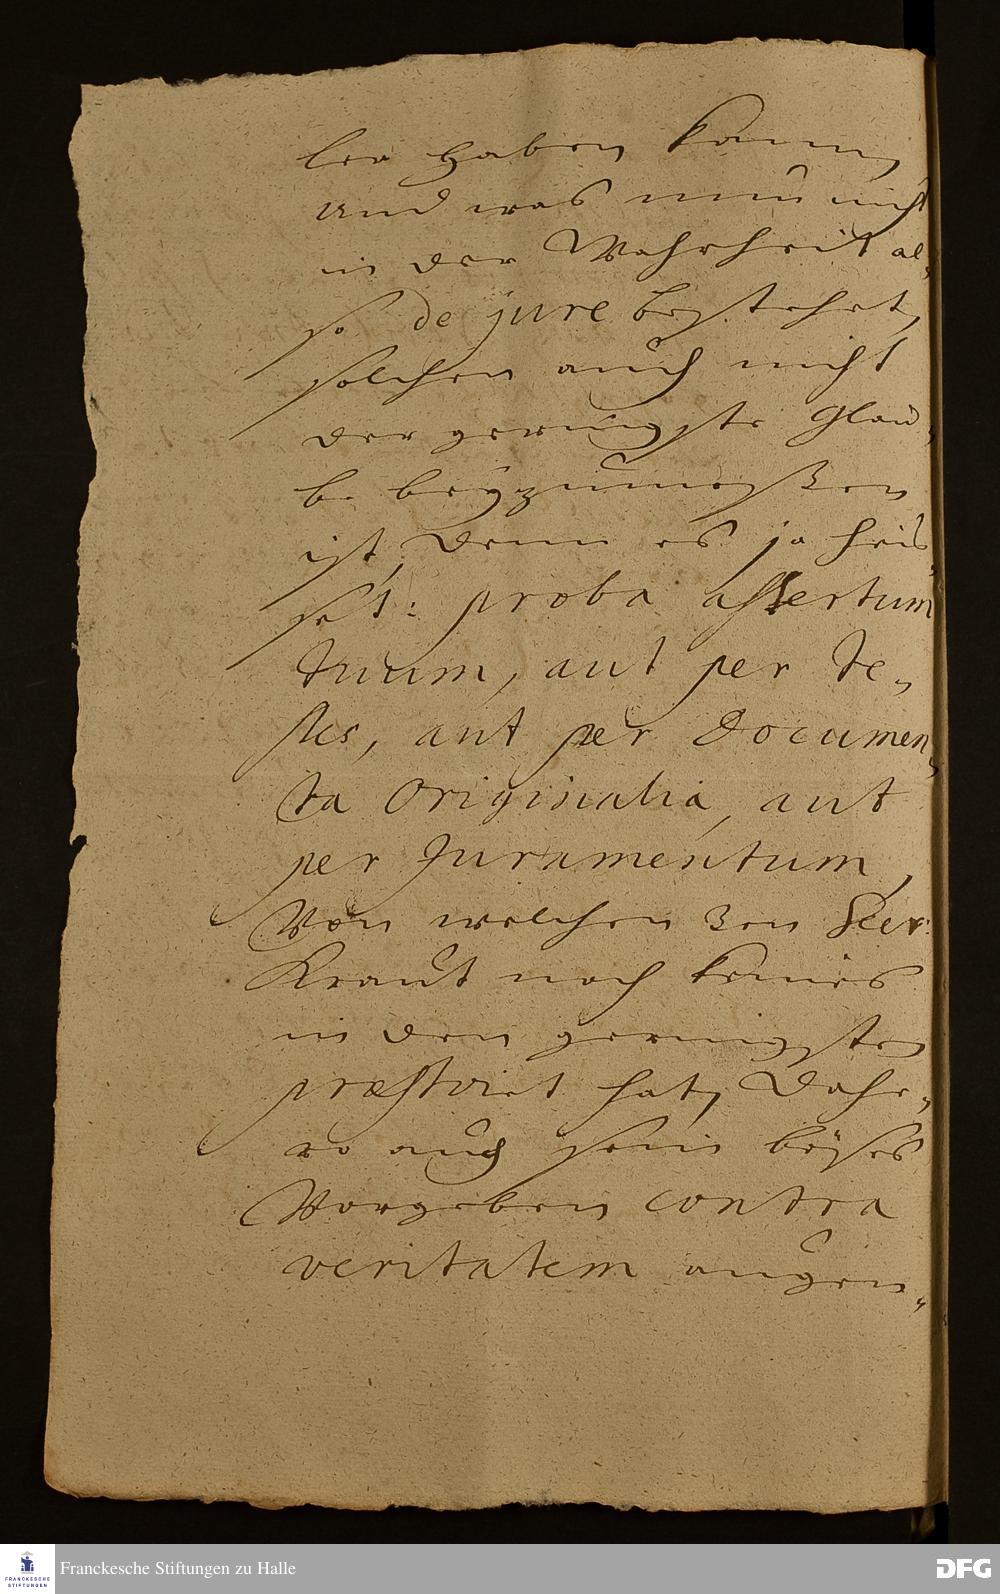 ler haben kann,
und was nun nicht
in der Wahrheit al-
so de jure bestehet,
solchen auch nicht
der geringste Glau-
be beyzumeßen
ist, denn es ja heis-
set: proba assertum
tuum, aut per te-
stes, aut per Documen
ta Originalia, aut
per Juramentum,
Von welchen 3en
Kraut noch keines
in den geringsten
præstiret hat, Dahe-
ro auch sein böses
Vorgeben contra
veritatem augen-
Franckesche Stiftungen zu Halle
FRANCKESCHE
STIFTUNGEN
DFG